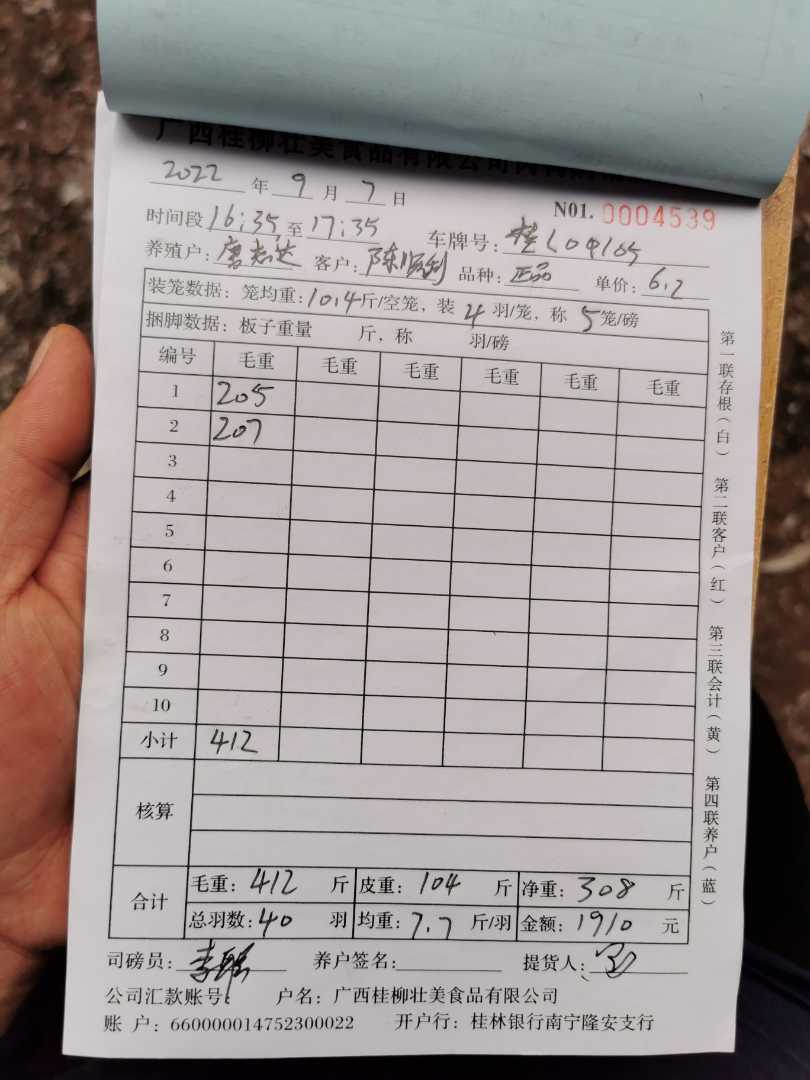 广西桂柳壮美食品有限公司
2022 年 9 月 7 日 N01. 0004539
时间段 16:35 至 17:35 车牌号:
养殖户: 唐志达 客户: 陈顺利 品种: 正品 单价: 6.2
装笼数据: 笼均重: 10.4 斤/空笼, 装 4 羽/笼, 称 5 笼/磅
捆脚数据: 板子重量 斤, 称 羽/磅
编号 毛重 毛重 毛重 毛重 毛重 毛重
1 205
2 207
3
4
5
6
7
8
9
10
小计 412
核算
合计 毛重: 412 斤 皮重: 104 斤 净重: 308 斤
总羽数: 40 羽 均重: 7.7 斤/羽 金额: 1910 元
司磅员: 养户签名: 提货人:
公司汇款账号: 户名: 广西桂柳壮美食品有限公司
账 户: 660000014752300022 开户行: 桂林银行南宁隆安支行
第一联存根(白) 第二联客户(红) 第三联会计(黄) 第四联养户(蓝)